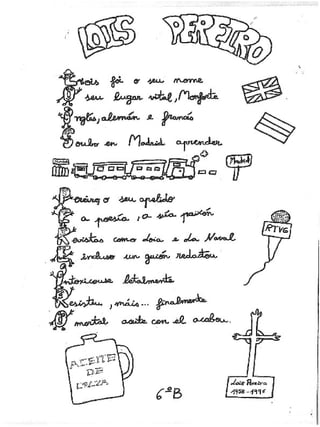 LOIS PEREIRO
Lois foi o seu nome
O seu lugar vital, Monforte
Inglés, alemán e francés
Soubo en Madrid aprender
Madrid
Pereiro o seu apelido
E a poesía, a súa paixón
Revistas como Loia e La Naval
E incluso un guión redactou
RTVG
Intoxicouse letalmente
Resistiu, máis... finalmente
O mortal aceite con el acabou.
ACEITE
DE
COLZA
Lois Pereiro
1958-1996
6ºB